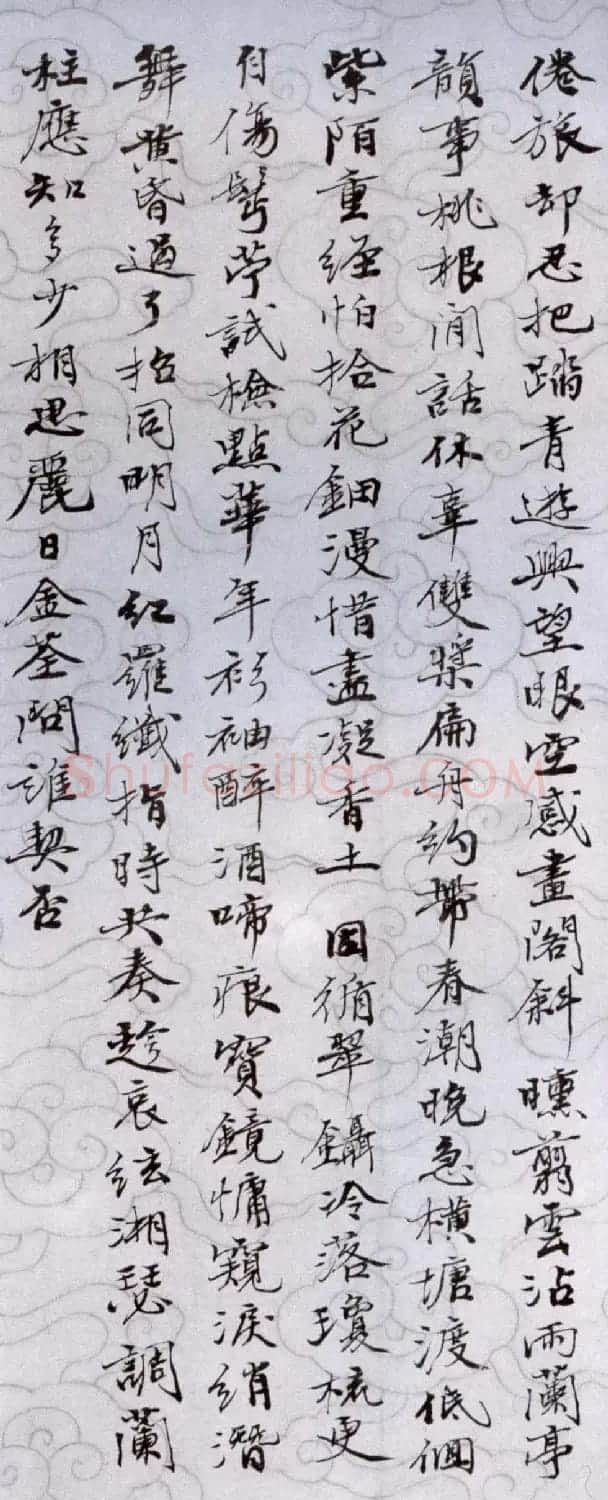 倦旅却忍把踏青遊興望眼空感畫閣斜曛翦雲沾雨蘭亭
韻事桃根閒話休辜雙槳扁舟約帶春潮晚急橫塘渡低徊
紫陌重經怕拾花鈿漫惜盡凝香土因循翠鑷冷落瓊梳更
自傷鬢苧試檢點華年衫袖醉酒啼痕寶鏡慵窺淚綃潛
舞黃昏過了招同明月紅羅纖指時共奏趁哀絃湘瑟調蘭
柱應知多少相思麗日金荃問誰契否
Shufaziliao.COM